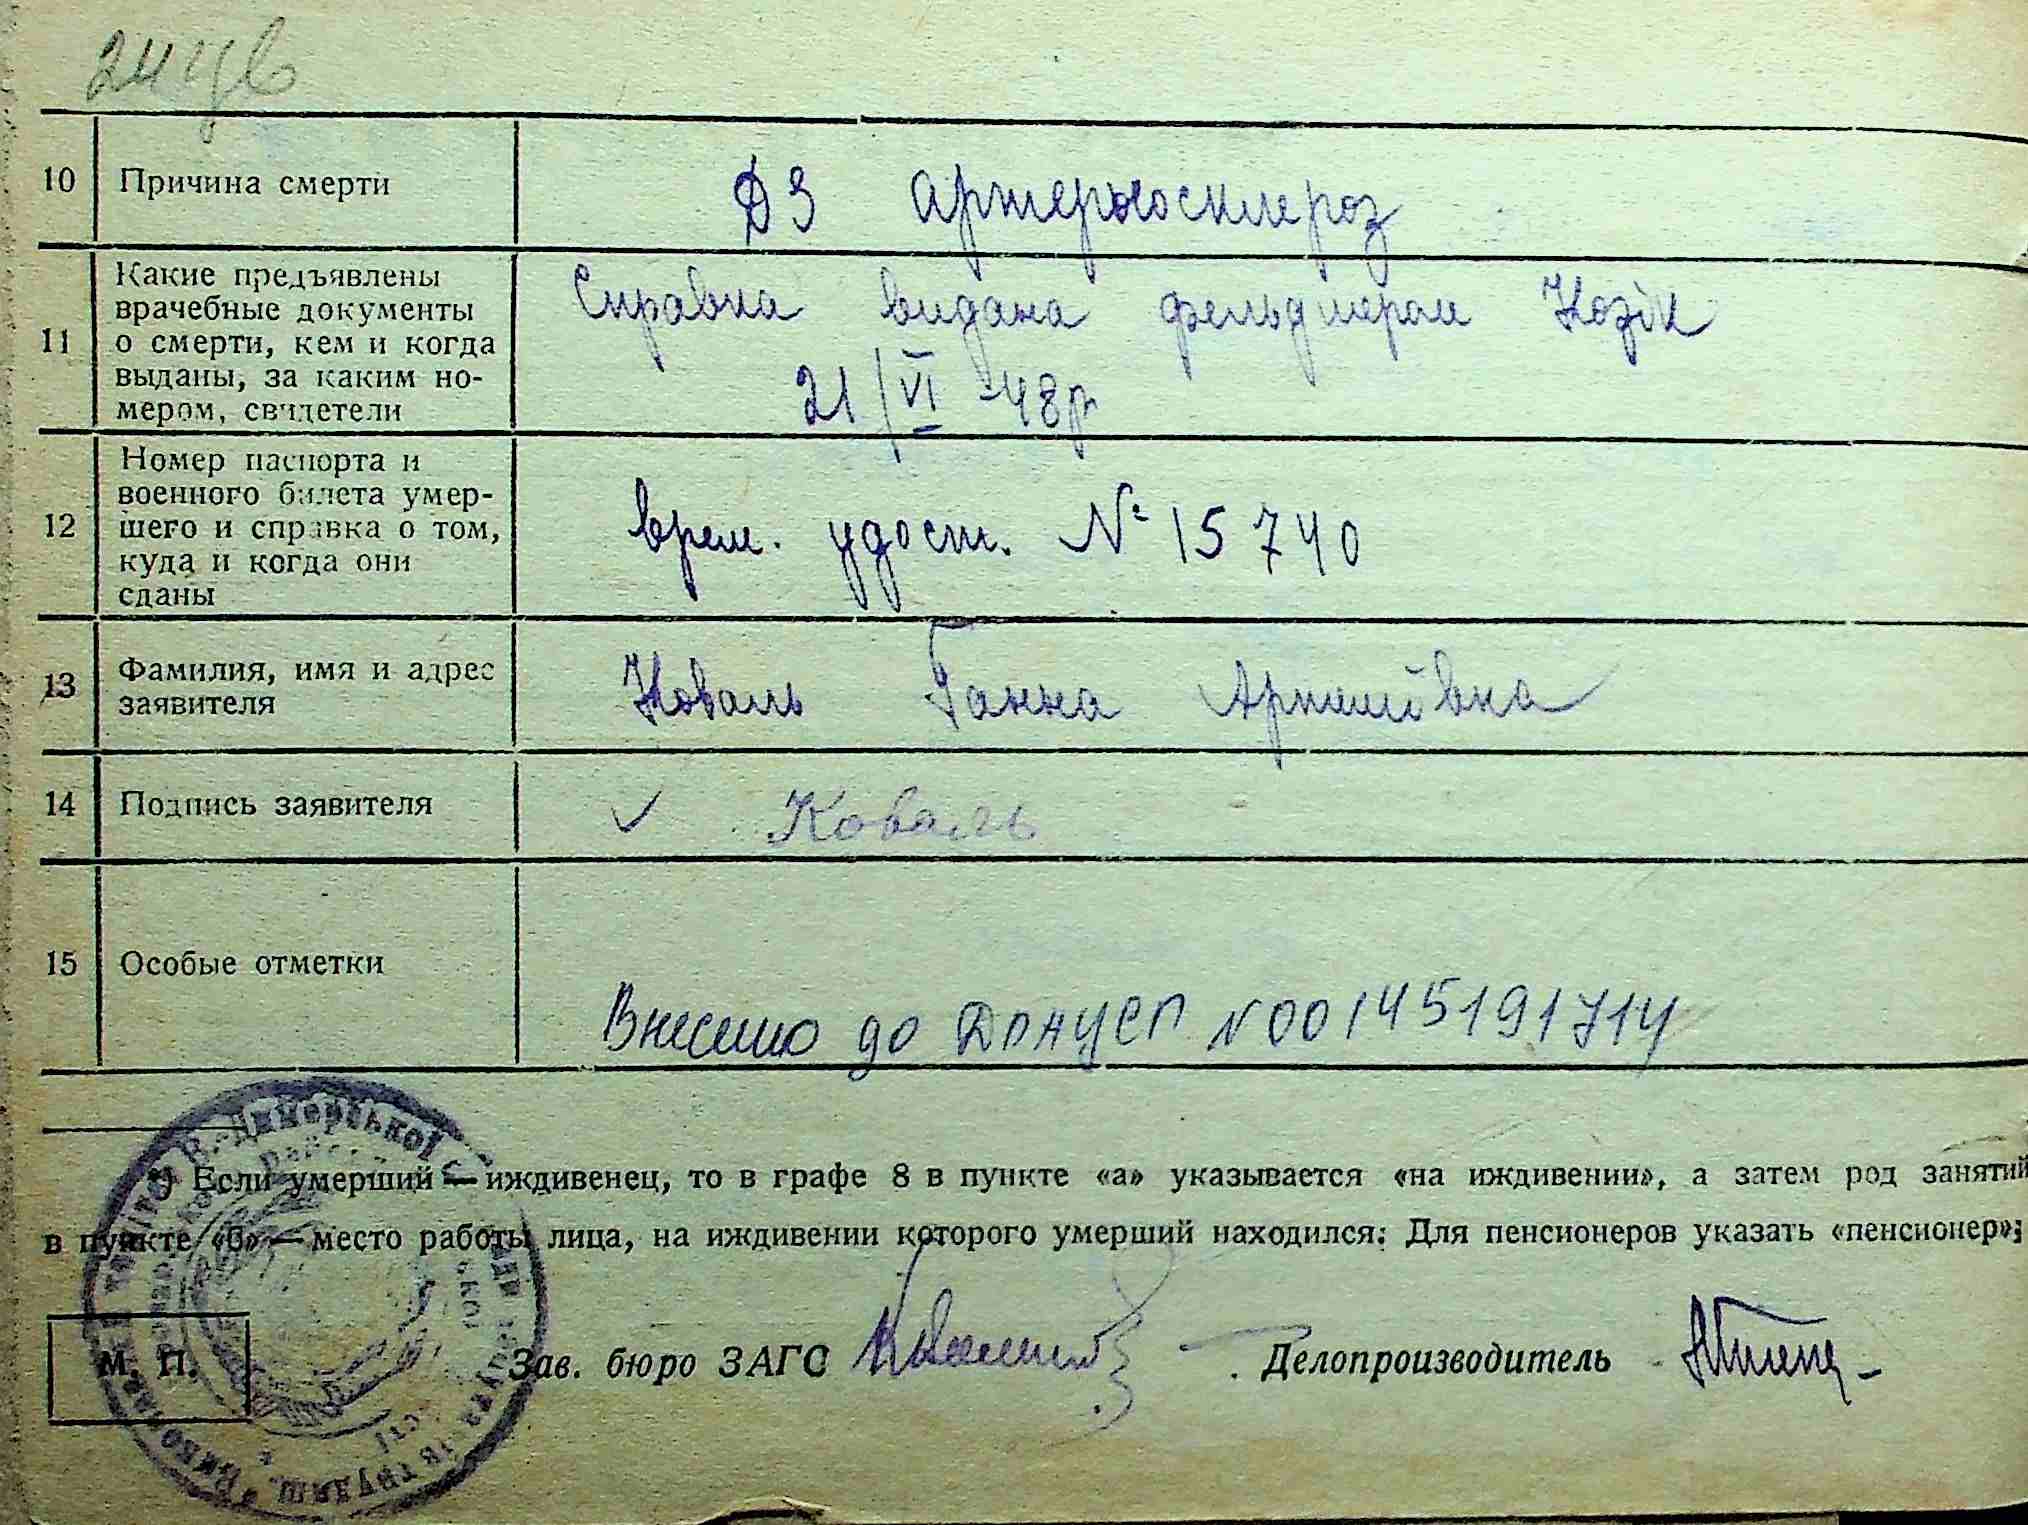 10 Причина смерти ДЗ Артериосклероз
11 Какие предъявлены
врачебные документы
о смерти, кем и когда
выданы, за каким но-
мером, свидетели
Справка видана фельдшером Козік
21/VI-48р
12 Номер паспорта и
военного билета умер-
шего и справка о том,
куда и когда они
сданы
врем. удост. № 15740
13 Фамилия, имя и адрес
заявителя
Коваль Ганна
14 Подпись заявителя Коваль
15 Особые отметки
Внесено до ДРАЦСГ N 00145191714
*) Если умерший — иждивенец, то в графе 8 в пункте «а» указывается «на иждивении», а затем род занятий
в пункте «б» — место работы лица, на иждивении которого умерший находился; Для пенсионеров указать «пенсионер»;
М. П.
Зав. бюро ЗАГС
Делопроизводитель